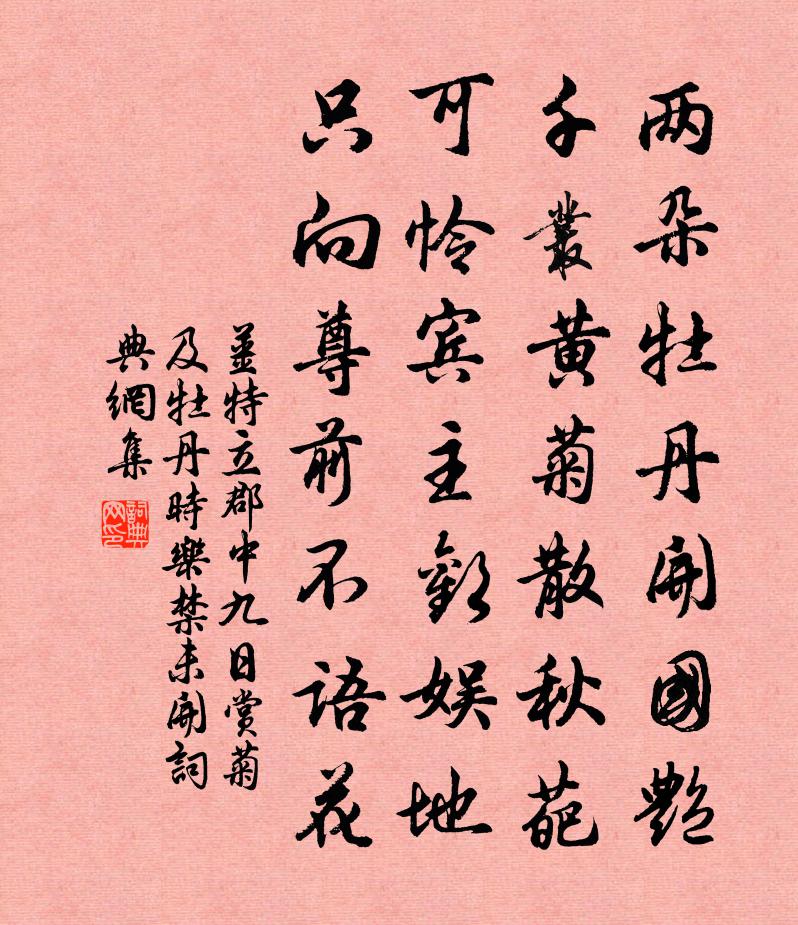 两朵牡丹開國艷
千叢黄菊散秋葩
可怜宾主歡娱地
只向尊前不语花
姜特立郡中九日赏菊
及牡丹時樂禁未開詞
典網集
詞典网印